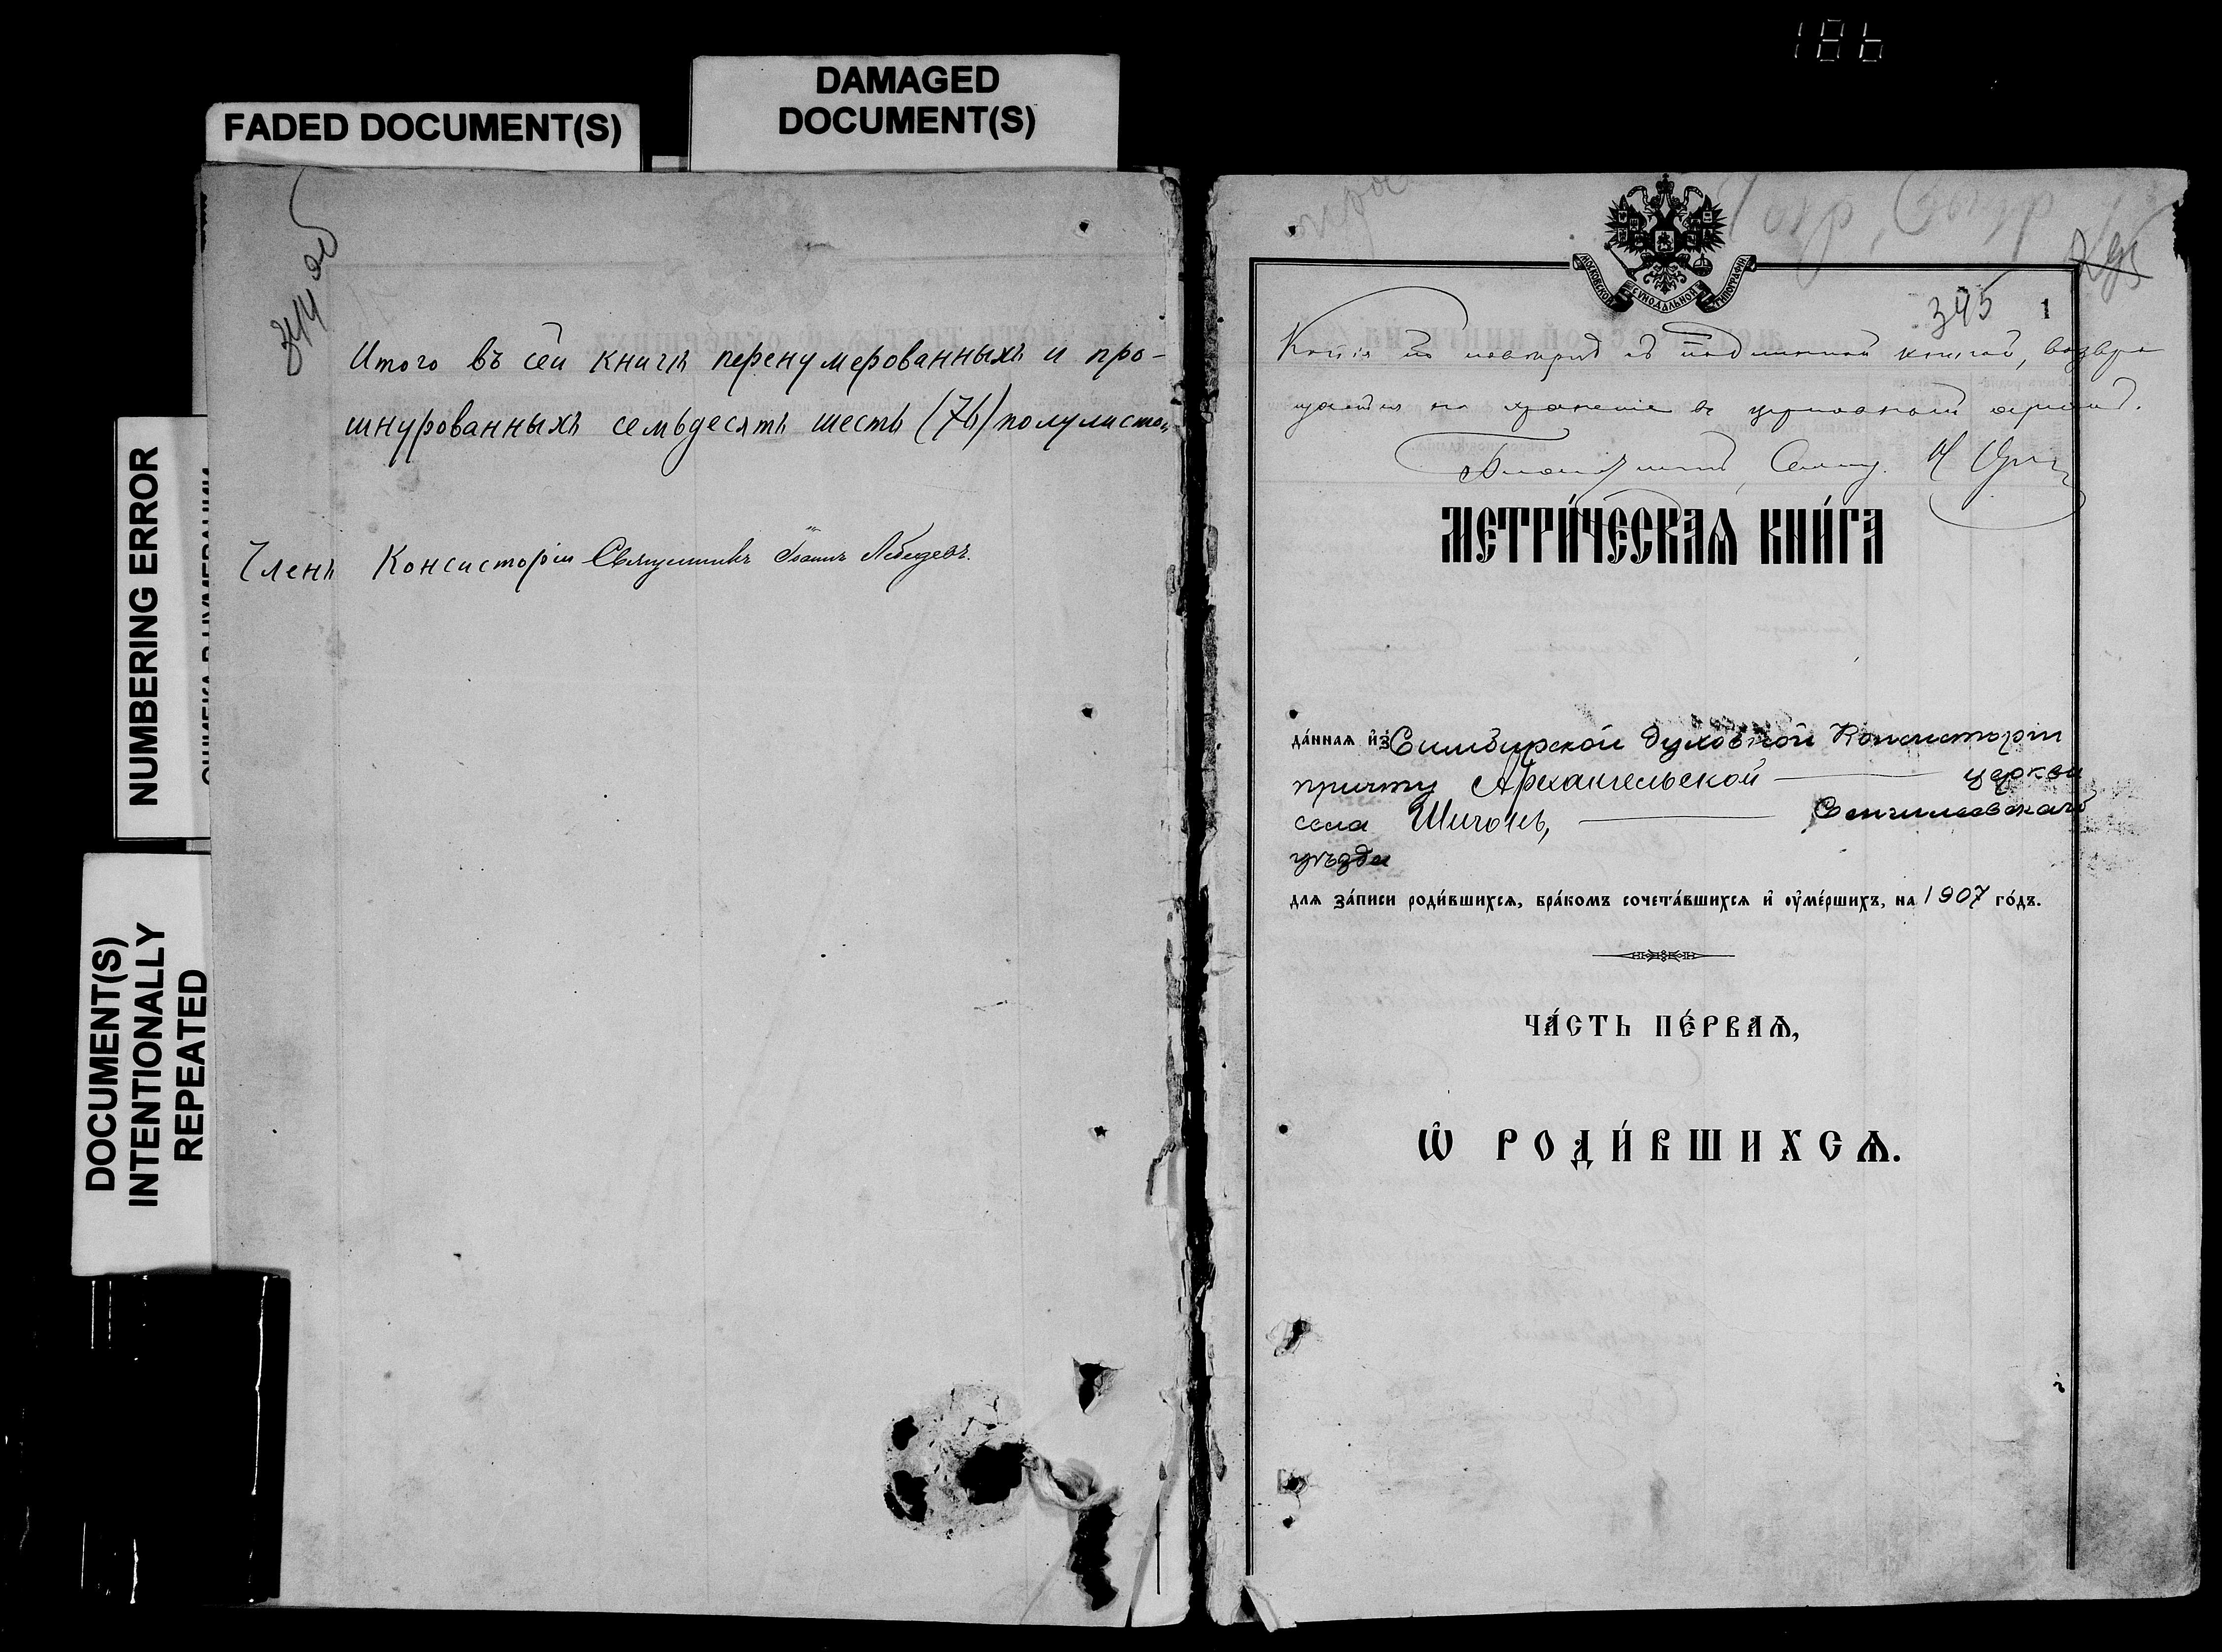 186
DAMAGED
DOCUMENT(S)
FADED DOCUMENT(S)
NUMBERING ERROR
DOCUMENT(S)
INTENTIONALLY
REPEATED
344 об
Итого въ сей книгѣ перенумерованныхъ и про-
шнурованныхъ семьдесятъ шесть (76) полулистовъ
Членъ Консисторіи Священникъ Іоаннъ Лебедевъ.
МОСКОВСКОЙ СѴНОДАЛЬНОЙ ТИПОГРАФІИ
345 1
Копія съ подлинной книгой, возвра
щается на храненіе въ церковный архивъ.
Благочинный, Свящ.
МЕТРИ́ЧЕСКАѦ КНИ́ГА
да́ннаѧ и҆зъ Симбирской Духовной Консисторіи
причту Архангельской церкви
села Шигонъ, Сенгилеевскаго
уѣзда
длѧ за́писи роди́вшихсѧ, бра́комъ сочета́вшихсѧ и҆ ᲂу҆ме́ршихъ, на 1907 го́дъ.
ЧА́СТЬ ПЕ́РВАѦ,
Ѽ РОДИ́ВШИХСѦ.